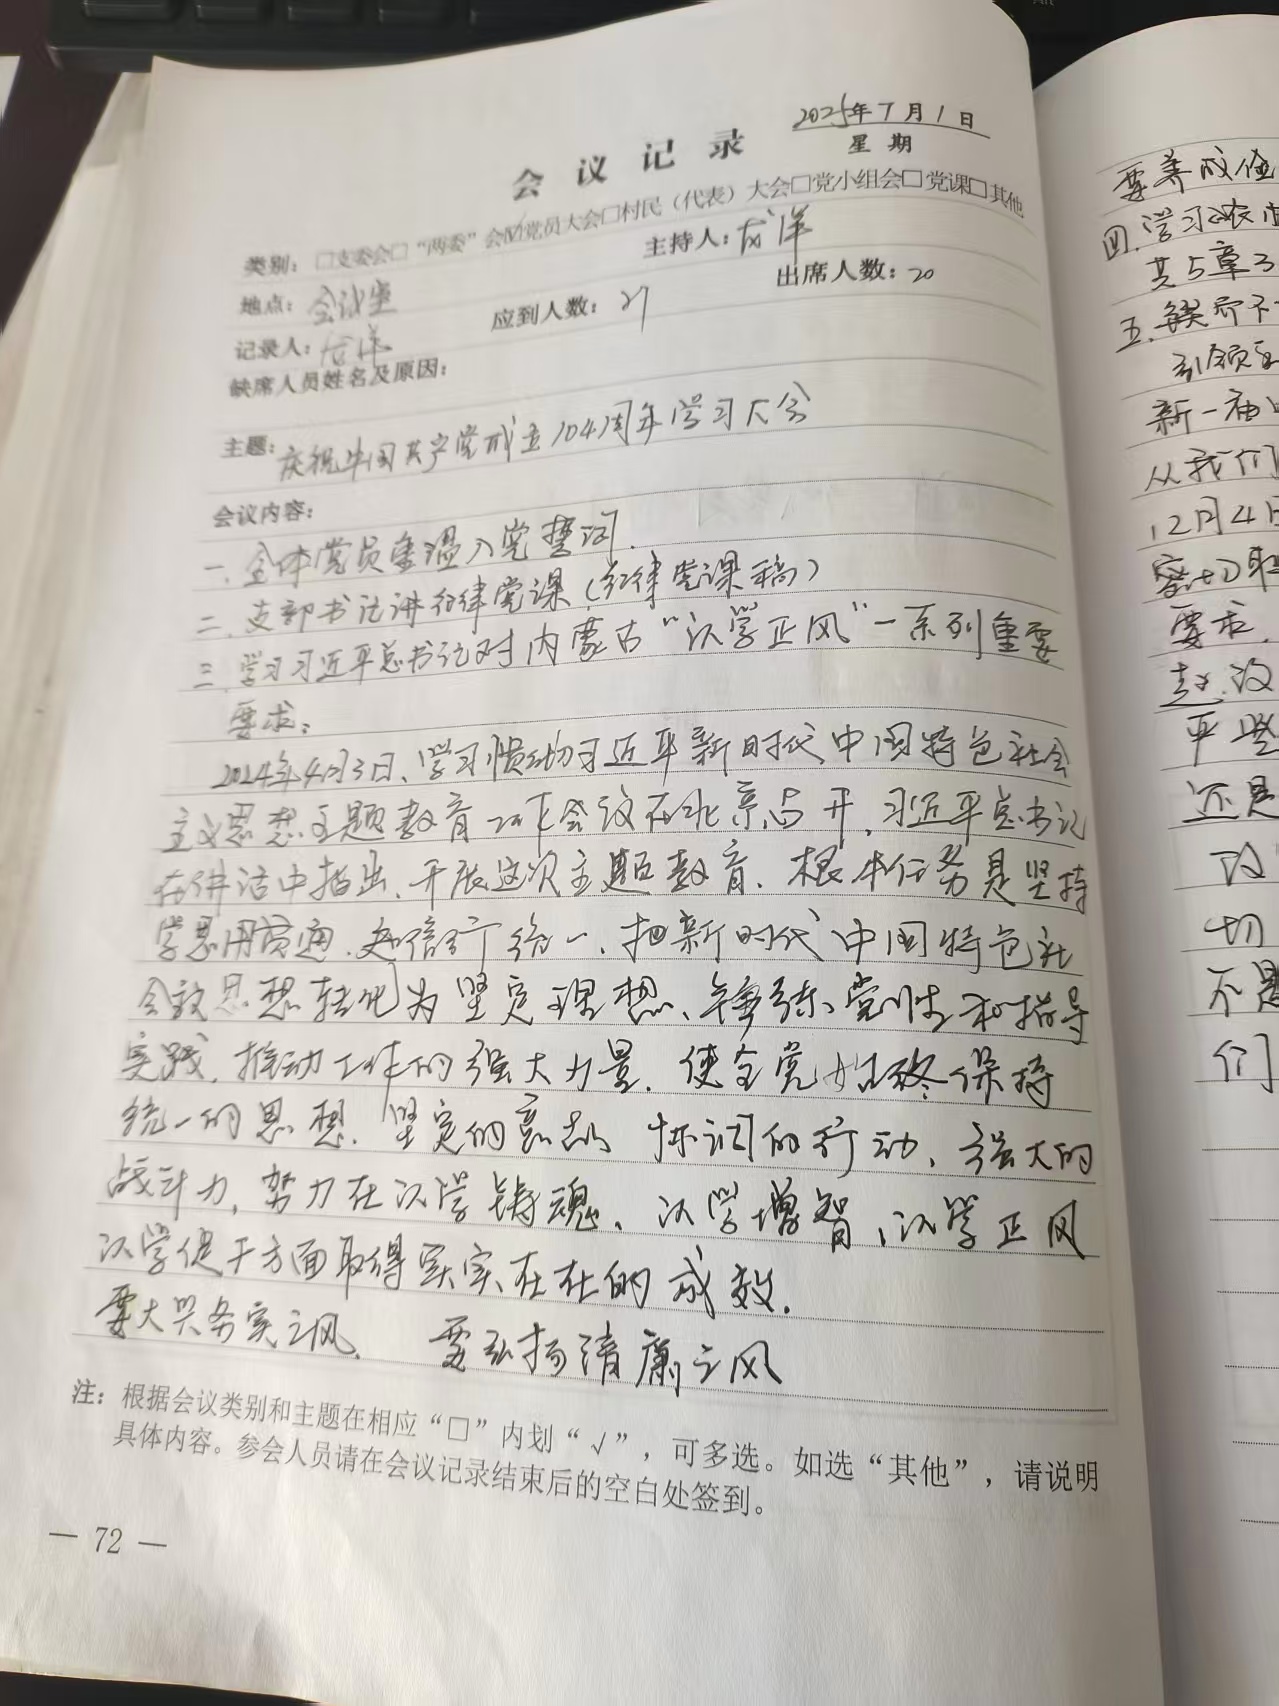 2025年7月1日
会议记录
星期
类别：□支委会□“两委”会☑党员大会□村民（代表）大会□党小组会□党课□其他
地点：会议室
主持人：
记录人：
应到人数：27
出席人数：20
缺席人员姓名及原因：
主题：庆祝中国共产党成立104周年学习大会
会议内容：
一、全体党员重温入党誓词.
二、支部书记讲纪律党课（纪律党课稿）
三、学习习近平总书记对内蒙古“以学正风”一系列重要
要求：
2024年4月3日、学习贯彻习近平新时代中国特色社会
主义思想主题教育工作会议在北京召开，习近平总书记
在讲话中指出、开展这次主题教育、根本任务是坚持
学思用贯通、知信行统一、把新时代中国特色社
会主义思想转化为坚定理想、锤练党性和指导
实践、推动工作的强大力量、使全党始终保持
统一的思想、坚定的意志、协调的行动、强大的
战斗力，努力在以学铸魂、以学增智、以学正风
以学促干方面取得实实在在的成效.
要大兴务实之风、 要弘扬清廉之风
注：根据会议类别和主题在相应“□”内划“√”，可多选。如选“其他”，请说明
具体内容。参会人员请在会议记录结束后的空白处签到。
— 72 —
要养成俭
四、学习《农
共5章3
五、
引领
新一届
从我们
12月4日
密切联
要求、
赴、没
平坚
还是
政
切
不是
们